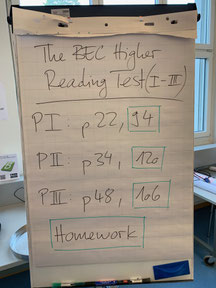 The BEC Higher
Reading Test (I-III)
PI: p22, 94
PII: p34, 120
PIII: p48, 166
Homework